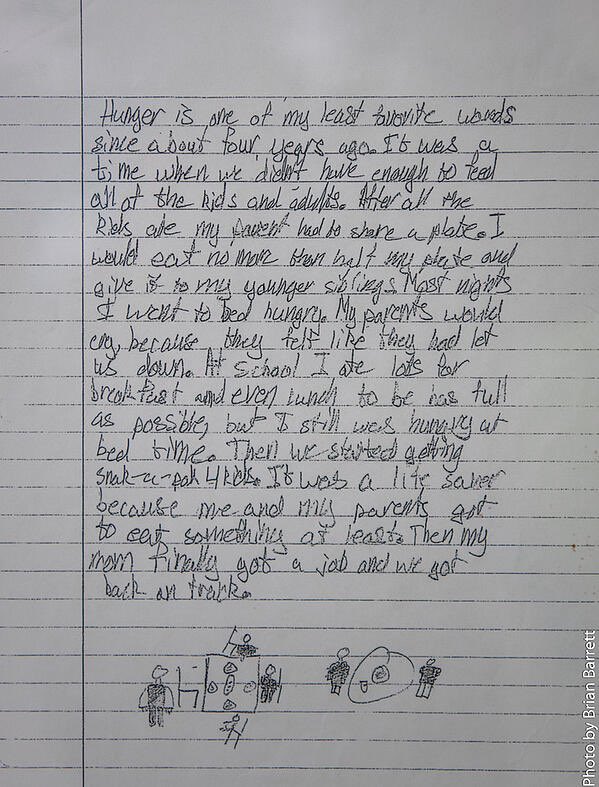 Hunger is one of my least favorite words
since about four years ago. It was a
time when we didn't have enough to feed
all of the kids and adults. After all the
kids ate my parent had to share a plate. I
would eat no more than half my plate and
give it to my younger siblings. Most nights
I went to bed hungry. My parents would
cry, because they felt like they had let
us down. At school I ate lots for
breakfast and even lunch to be has full
as possible, but I still was hungry at
bed time. Then we started getting
snak-a-pak 4 kids. It was a life saver
because me and my parents got
to eat something at least. Then my
mom finally got a job and we got
back on track.
Photo by Brian Barrett